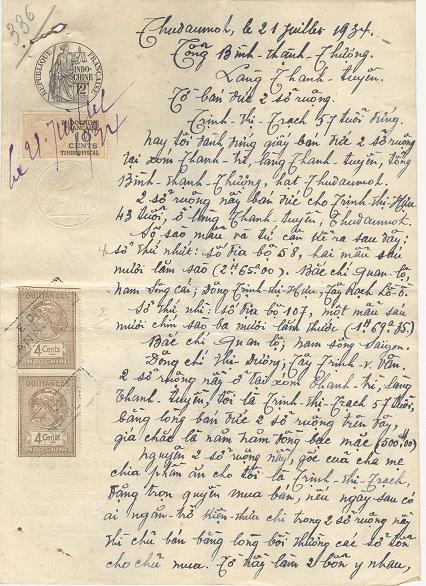 336
Thudaumot, le 21 Juillet 1934.
RÉPUBLIQUE FRANÇAISE
INDO-CHINE
Tổng Bình-thành-Thượng.
Làng Thanh-tuyền.
Tờ bán đức 2 sở ruộng.
Trịnh-thị-Trạch 57 tuổi đứng
INDOCHINE
FRANÇAISE
CENTS
TIMBRE FISCAL
nay tôi đành đứng giấy bán đức 2 sở ruộng
tại xóm Chánh-trí, làng Thanh-tuyền, tổng
Bình-thanh-Thượng, hạt Thudaumot.
2 sở ruộng nầy bán đức cho Trịnh-thị-Hựu
43 tuổi, ở làng Thanh-tuyền, Thudaumot.
Số sào mẫu và tứ cận kể ra sau đây;
sở thứ nhứt: số địa bộ 58, hai mẫu sáu
mười lăm sào (2H65a00). Bắc chí Quan-lộ,
nam Sông cái; Đông Trịnh-thị-Hựu; Tây Rạch
Sở thứ nhì: số địa bộ 107, một mẫu sáu
mươi chín sào ba mươi lăm thước (1H69a35)
QUITTANCES
4 Cents
INDOCHINE
Bắc chí Quan lộ; nam sông Saigon.
Đông chí Thi-Dương; Tây Trịnh-v-Vân.
2 sở ruộng nầy ở tại xóm Chánh-trí, làng
Thanh-tuyền, tôi là Trịnh-thị-Trạch 57 tuổi,
bằng lòng bán đức 2 sở ruộng trên đây,
giá chắc là năm trăm đồng bạc mặc (500$00)
QUITTANCES
4 Cents
INDOCHINE
nguyên 2 sở ruộng nầy, gốc của cha mẹ
chia phần ăn cho tôi là Trịnh-thị-Trạch,
đặng trọn quyền mua bán, nếu ngày sau có
ai ngăn-trở kiện-thưa chi trong 2 sở ruộng nầy
thì chủ bán bằng lòng bồi thường các sở tổn
cho chủ mua. Tờ nầy làm 2 bổn y nhau,